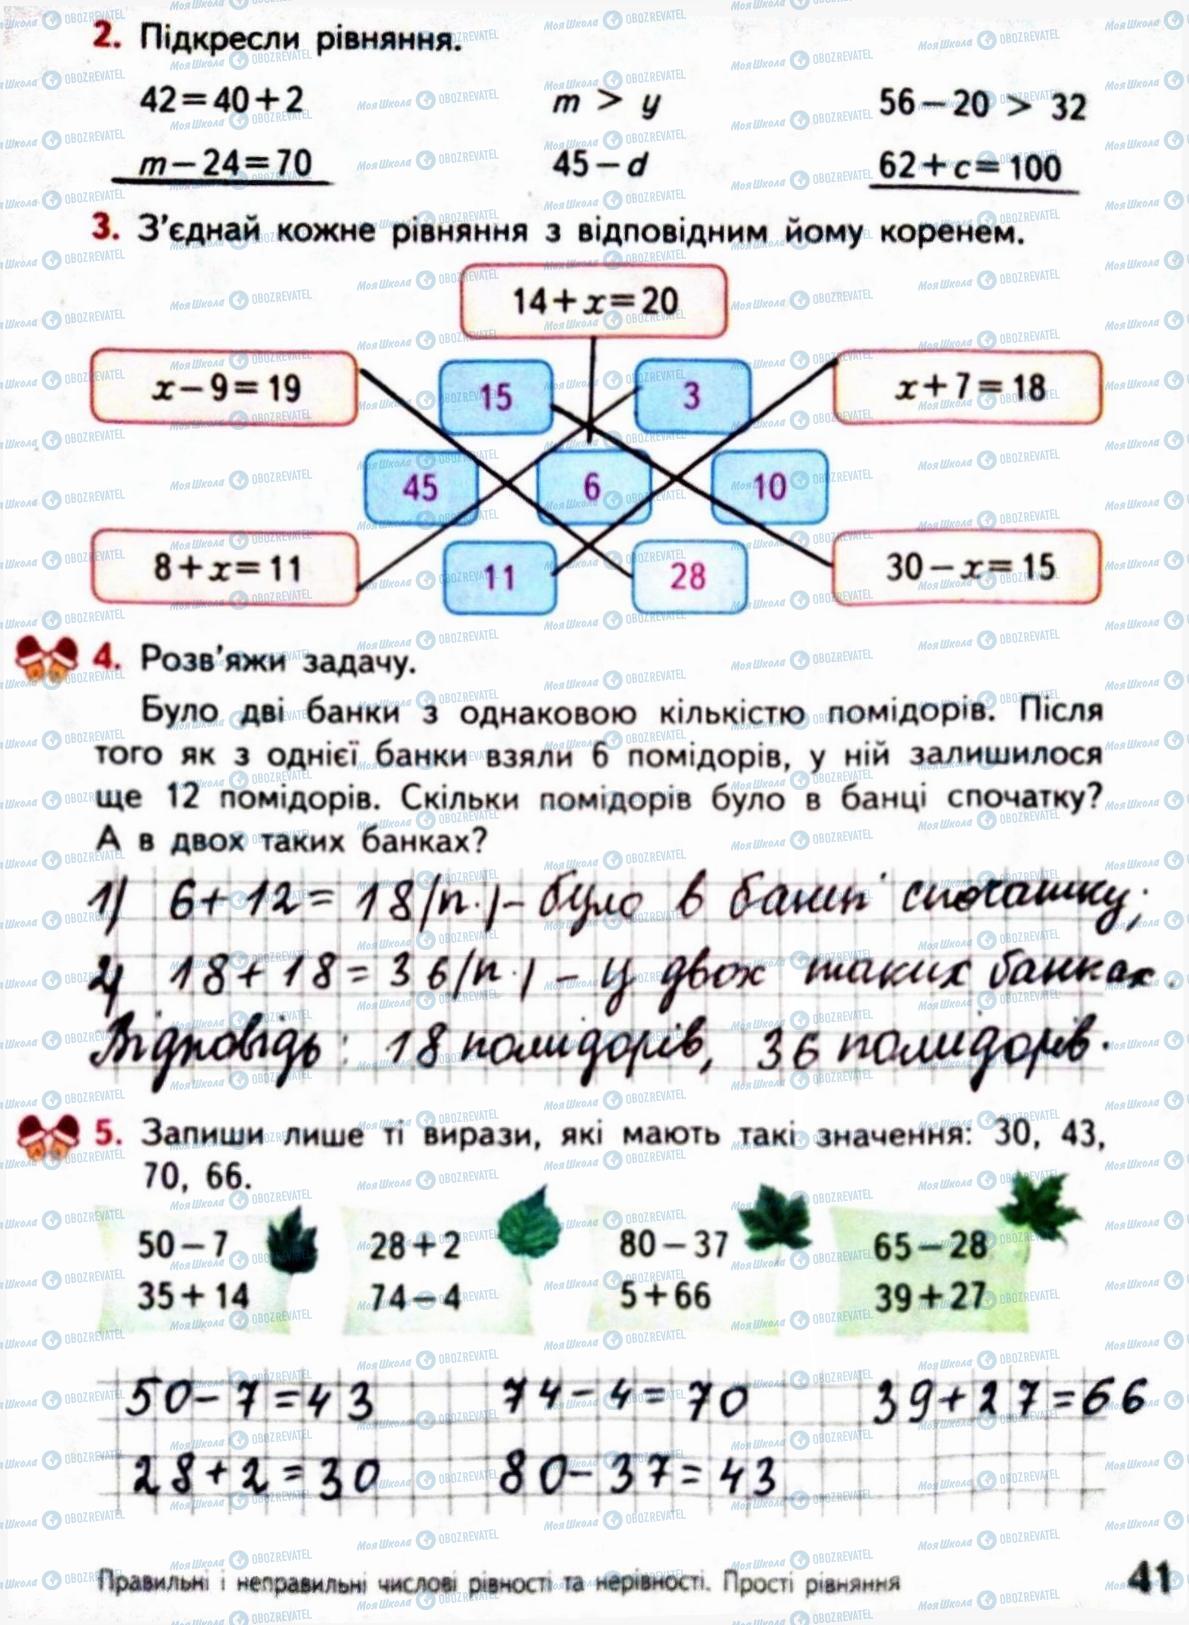 2. Підкресли рівняння.
42=40+2 m > y 56−20 > 32
m−24=70 45−d 62+c=100
3. З'єднай кожне рівняння з відповідним йому коренем.
14+x=20
x−9=19 15 3 x+7=18
45 6 10
8+x=11 11 28 30−x=15
4. Розв'яжи задачу.
Було дві банки з однаковою кількістю помідорів. Після
того як з однієї банки взяли 6 помідорів, у ній залишилося
ще 12 помідорів. Скільки помідорів було в банці спочатку?
А в двох таких банках?
1) 6+12=18(п.)− було в банці спочатку;
2) 18+18=36(п.) − у двох таких банках.
Відповідь: 18 помідорів, 36 помідорів.
5. Запиши лише ті вирази, які мають такі значення: 30, 43,
70, 66.
50−7 28+2 80−37 65−28
35+14 74−4 5+66 39+27
50−7=43 74−4=70 39+27=66
28+2=30 80−37=43
Правильні і неправильні числові рівності та нерівності. Прості рівняння 41
МояШкола OBOZREVATEL